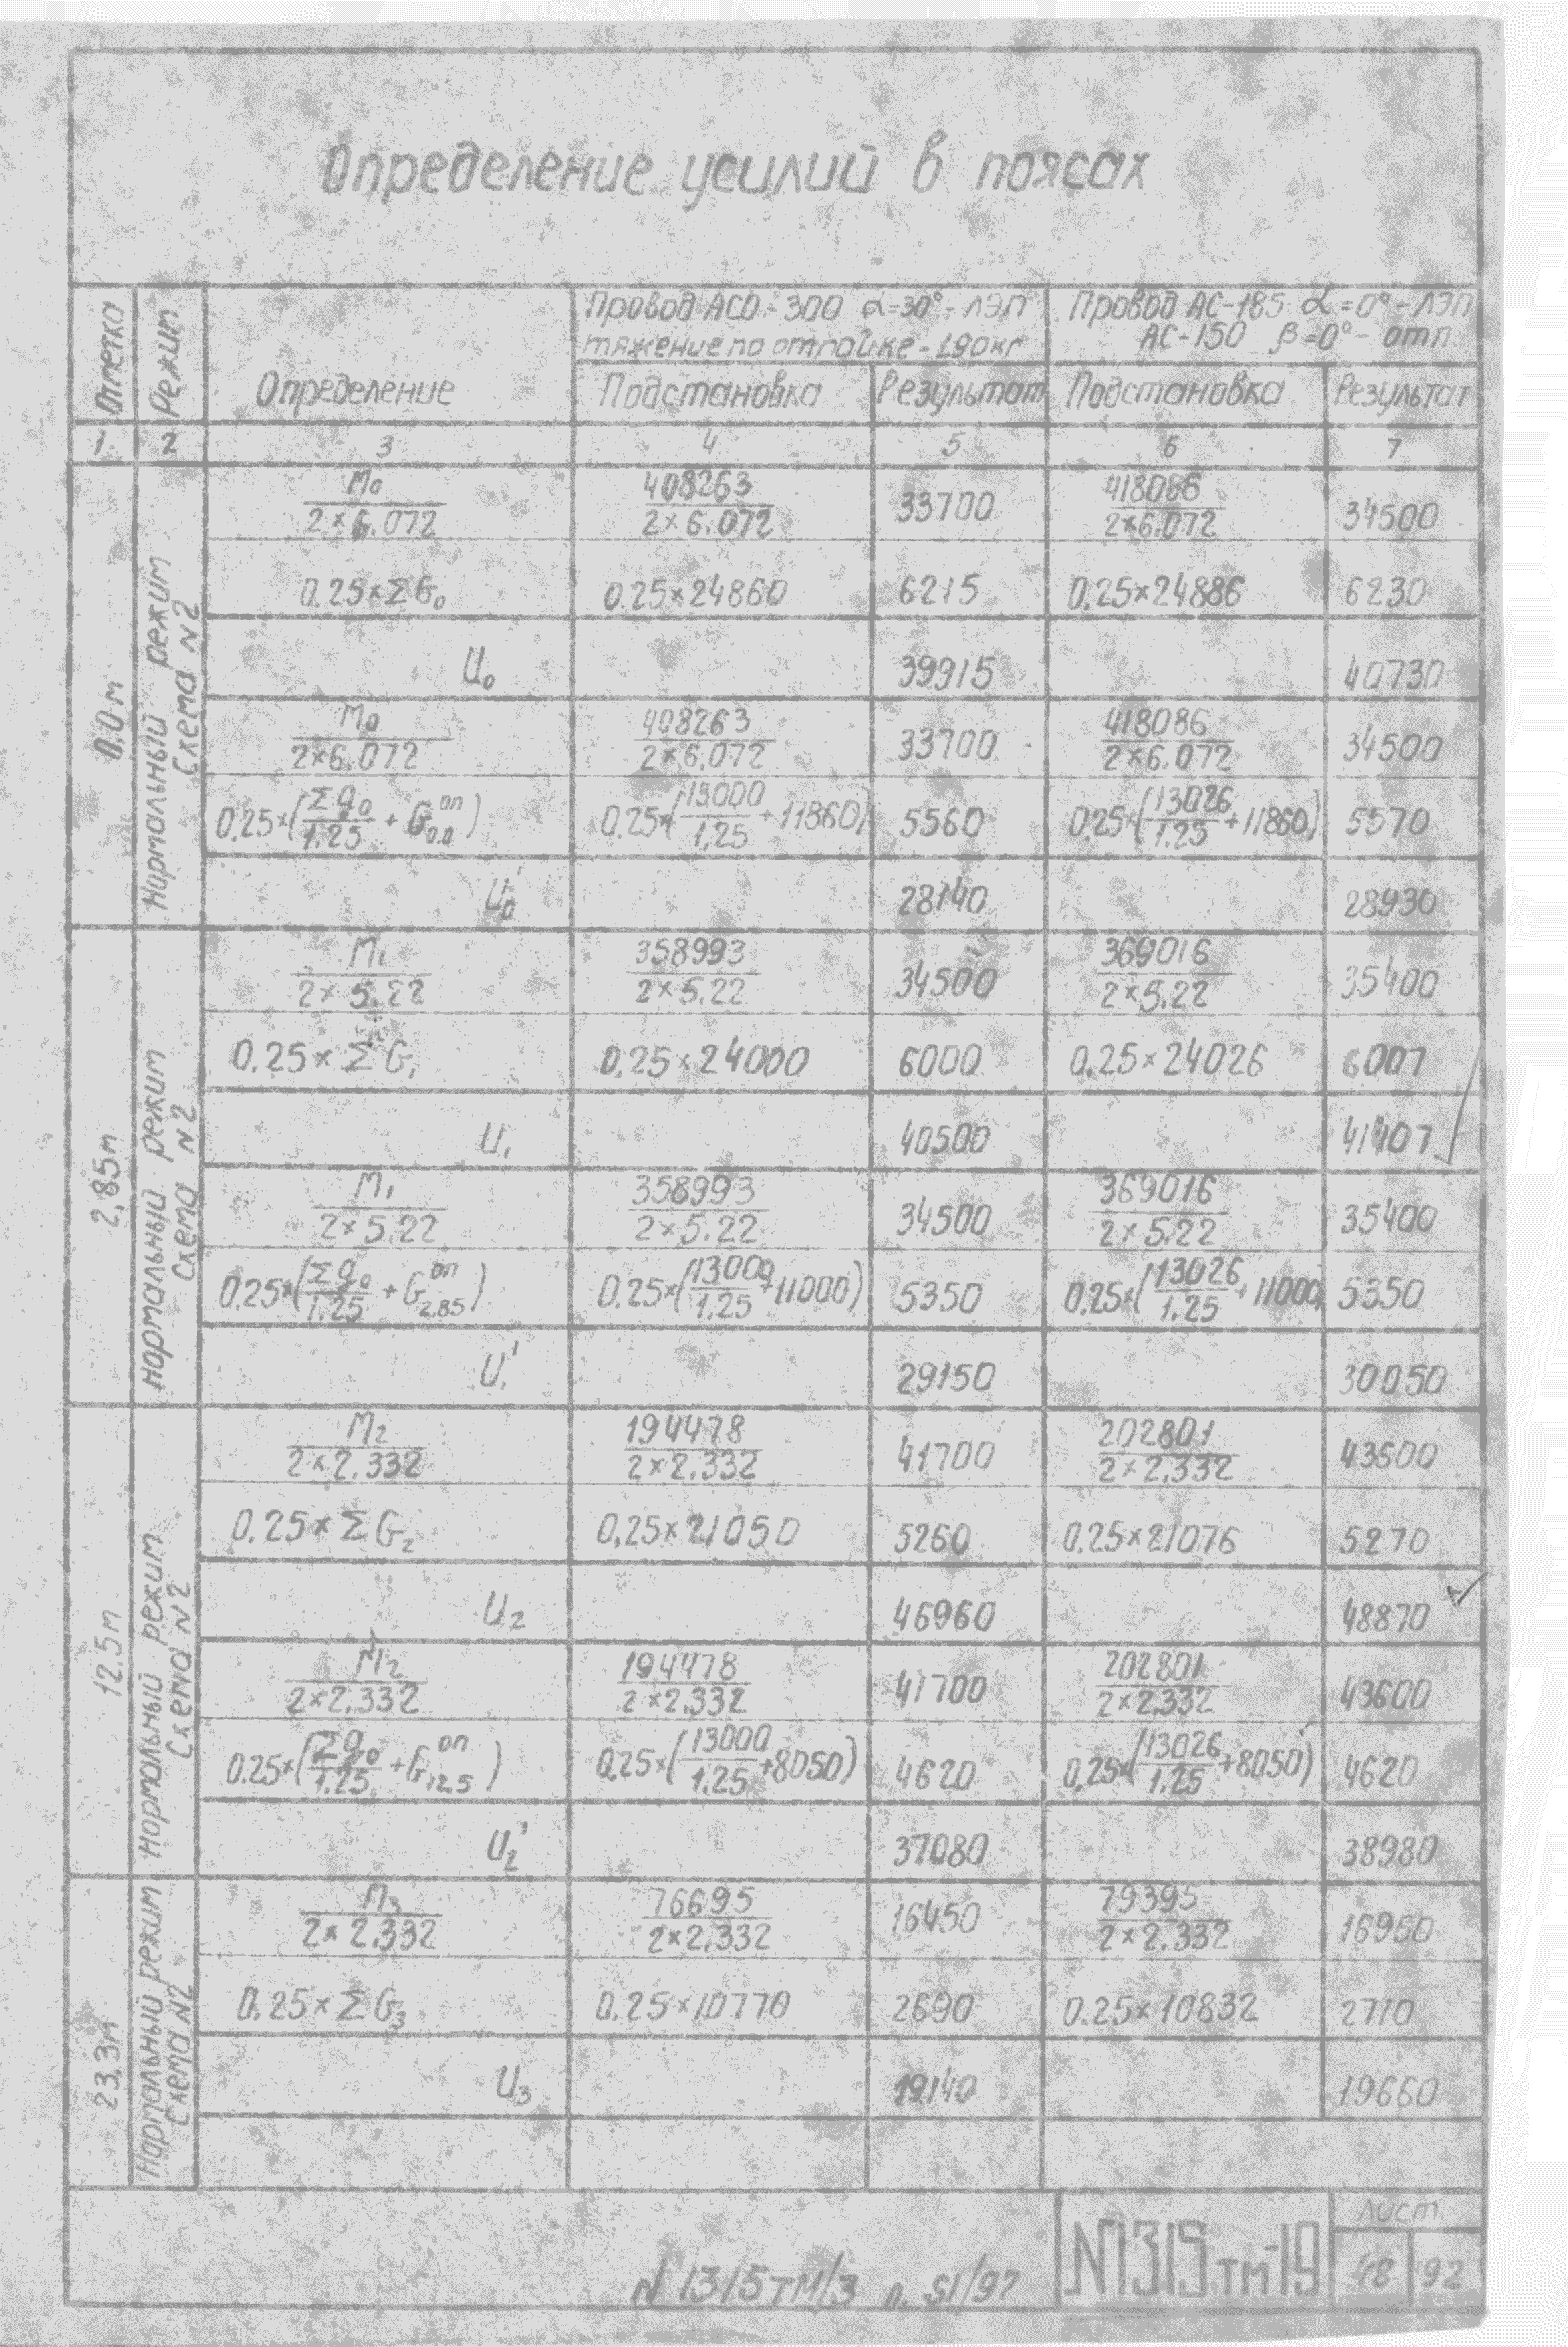 Определение усилий в поясах
Отметка
Режим
Определение
Провод АСО-300 α=30°-ЛЭП
тяжение по отпайке-190кг
Провод АС-185 α=0°-ЛЭП
АС-150 β=0°- отп.
Подстановка Результат Подстановка Результат
1. 2 3 4 5 6 7
0,0м
Нормальный режим
Схема N2
M₀/2×6.072 408263/2×6.072 33700 418086/2×6.072 34500
0.25×ΣG₀ 0.25×24860 6215 0.25×24886 6230
U₀ 39915 40730
M₀/2×6.072 408263/2×6.072 33700 418086/2×6.072 34500
0.25×(Σg₀/1.25 + G₀.₀ᵒⁿ) 0.25×(13000/1.25 + 11860) 5560 0.25×(13026/1.25 + 11860) 5570
U₀' 28140 28930
2,85м
Нормальный режим
Схема N2
M₁/2×5.22 358993/2×5.22 34500 369016/2×5.22 35400
0.25×ΣG₁ 0.25×24000 6000 0.25×24026 6007
U₁ 40500 41407
M₁/2×5.22 358993/2×5.22 34500 369016/2×5.22 35400
0.25×(Σg₀/1.25 + G₂.₈₅ᵒⁿ) 0.25×(13000/1.25 + 11000) 5350 0.25×(13026/1.25 + 11000) 5350
U₁' 29150 30050
12.5м
Нормальный режим
Схема N2
M₂/2×2.332 194478/2×2.332 41700 202801/2×2.332 43500
0.25×ΣG₂ 0.25×21050 5260 0.25×21076 5270
U₂ 46960 48870
M₂/2×2.332 194478/2×2.332 41700 202801/2×2.332 43600
0.25×(Σg₀/1.25 + G₁₂.₅ᵒⁿ) 0.25×(13000/1.25 + 8050) 4620 0.25×(13026/1.25 + 8050) 4620
U₂' 37080 38980
23.3м
Нормальный режим
Схема N2
M₃/2×2.332 76695/2×2.332 16450 79395/2×2.332 16950
0.25×ΣG₃ 0.25×10770 2690 0.25×10832 2710
U₃ 19140 19660
N 1315ТМ/3 л. 51/92
N1315тм-19
Лист
48 92